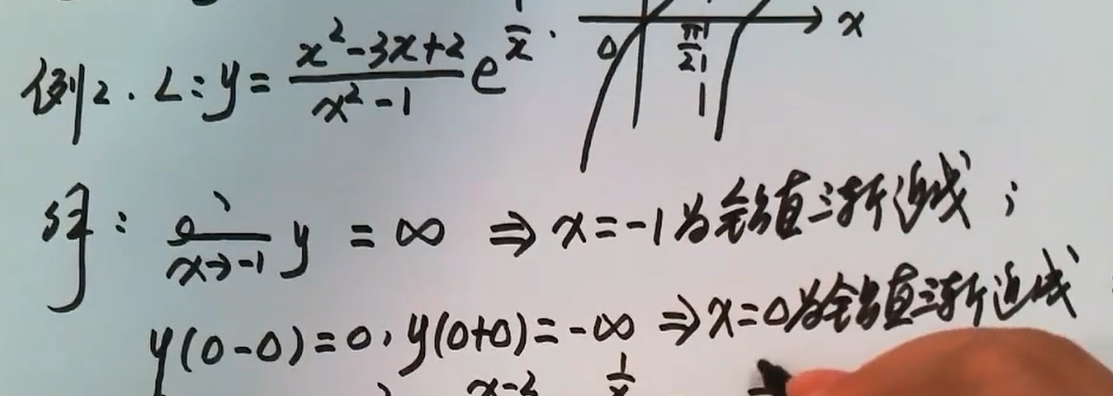 例2. L: y = \frac{x^2-3x+2}{x^2-1} e^{\frac{1}{x}}.
x
0 \frac{π}{2}
解: \lim_{x→-1} y = ∞ ⇒ x=-1为铅直渐近线;
y(0-0)=0, y(0+0)=-∞ ⇒ x=0为铅直渐近线
x-2 \frac{1}{x}